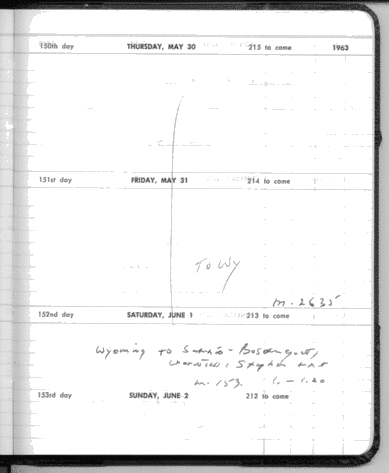 150th day THURSDAY, MAY 30 215 to come 1963
151st day FRIDAY, MAY 31 214 to come
To Wy
m. 2635
152nd day SATURDAY, JUNE 1 213 to come
Wyoming to Sarnia - Bosanquet,
m. 159. 1. - 1.20
153rd day SUNDAY, JUNE 2 212 to come